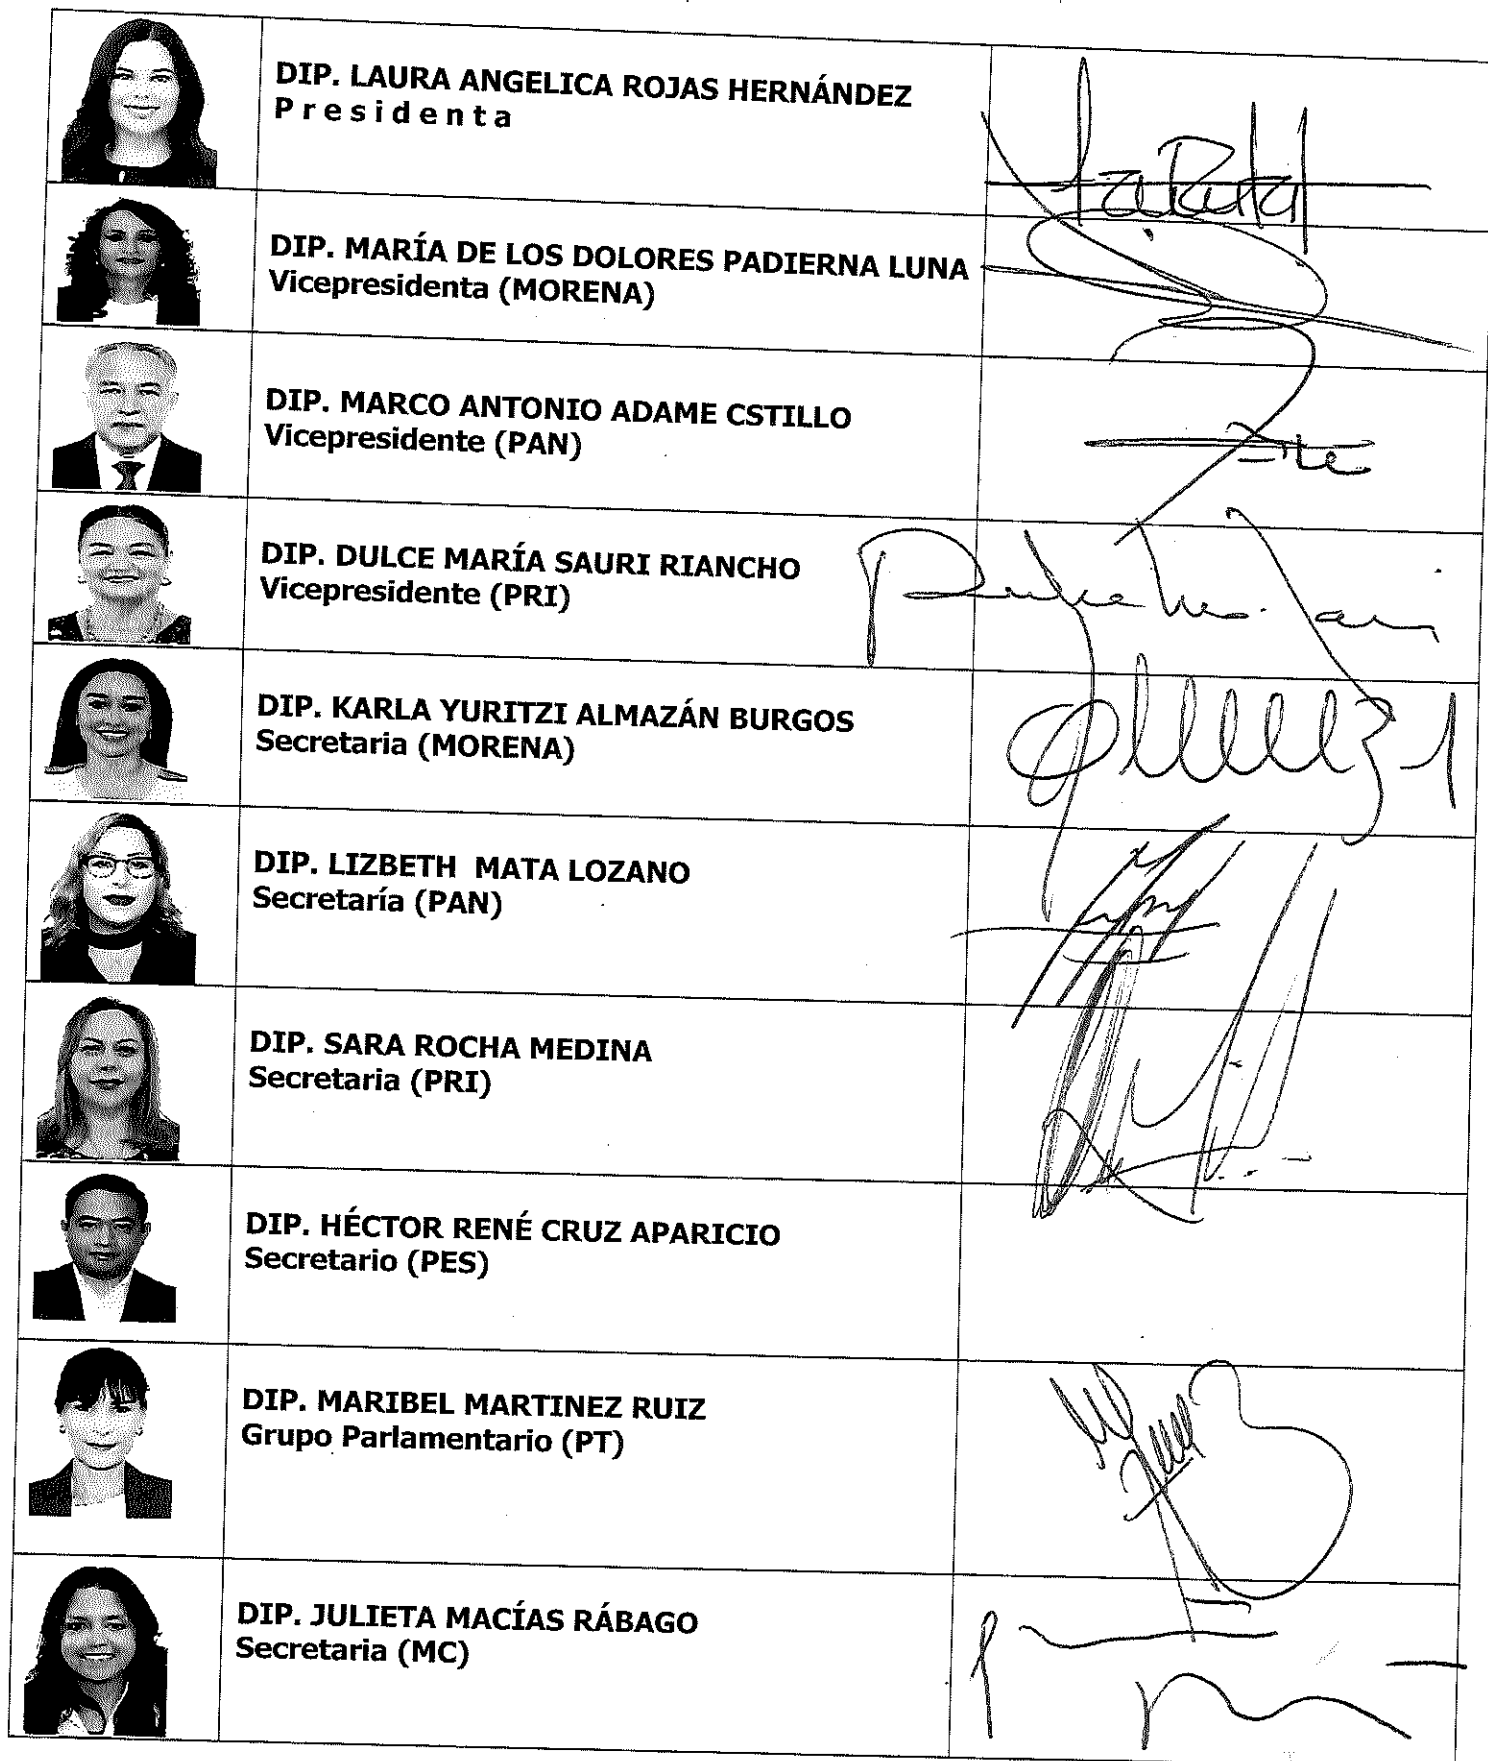 DIP. LAURA ANGELICA ROJAS HERNÁNDEZ
Presidenta
DIP. MARÍA DE LOS DOLORES PADIERNA LUNA
Vicepresidenta (MORENA)
DIP. MARCO ANTONIO ADAME CSTILLO
Vicepresidente (PAN)
DIP. DULCE MARÍA SAURI RIANCHO
Vicepresidente (PRI)
DIP. KARLA YURITZI ALMAZÁN BURGOS
Secretaria (MORENA)
DIP. LIZBETH MATA LOZANO
Secretaría (PAN)
DIP. SARA ROCHA MEDINA
Secretaria (PRI)
DIP. HÉCTOR RENÉ CRUZ APARICIO
Secretario (PES)
DIP. MARIBEL MARTINEZ RUIZ
Grupo Parlamentario (PT)
DIP. JULIETA MACÍAS RÁBAGO
Secretaria (MC)